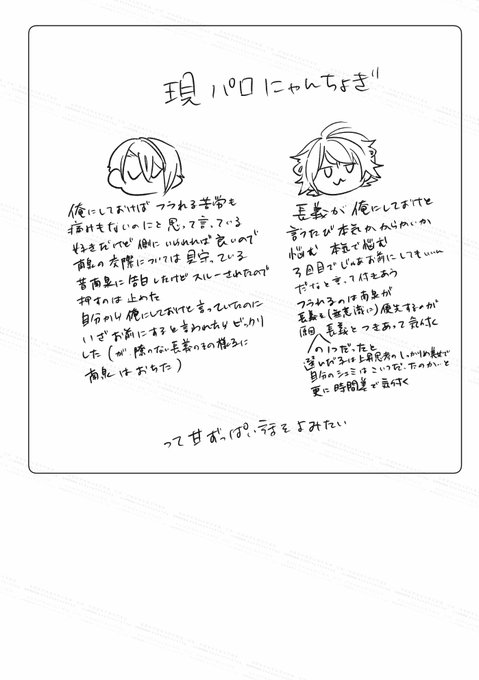 現パロにゃんちょぎ
俺にしておけば フラれる苦労も
痛みもないのにと思って言っている
好きだけど側にいられれば良いので
南泉の交際については見守っている
昔南泉に告白したけどスルーされたので
押すのは止めた
自分から俺にしておけと言っていたのに
いざお前にすると言われたらビックリ
した(が 隙のない長義のその様子に
南泉はおちた)
長義が俺にしておけと
言うたび本気かからかいか
悩む 本気で悩む
3回目でじゃあお前にしてもいい
だなと言って付きあう
フラれるのは南泉が
長義を(無意識に)優先するのが
原因 長義とつきあって気付く
の1つだったと
選んだ子は上昇思考のしっかりめ美女で
自分のシュミはこいつだったのか…と
更に時間差で気付く
って甘ずっぱい話をよみたい